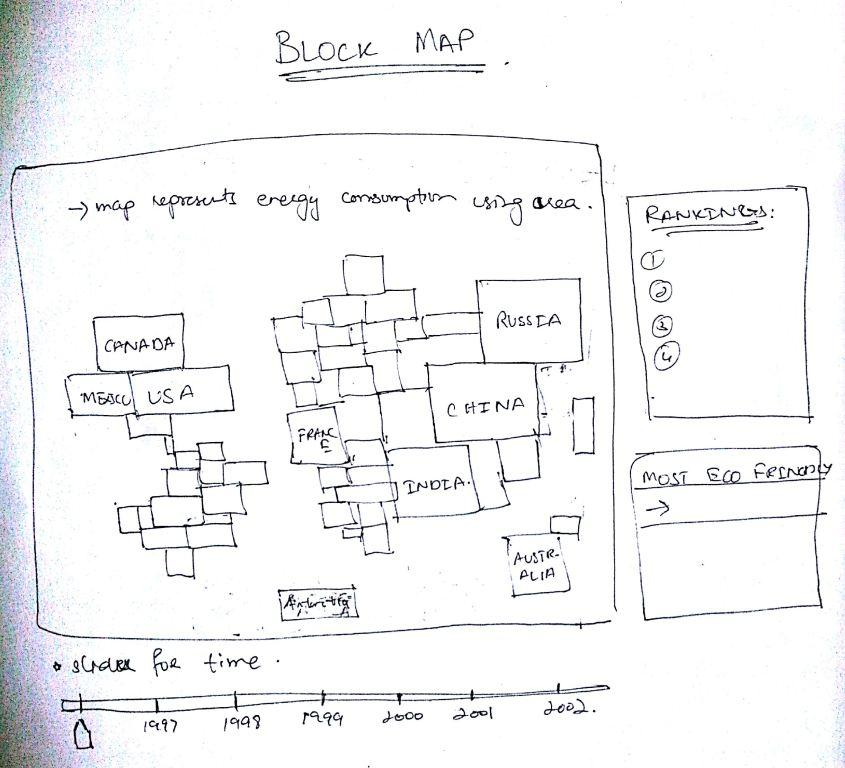 BLOCK MAP
→ map represents energy consumption using area.
CANADA
MEXICO USA
RUSSIA
CHINA
FRANCE
INDIA.
AUSTR-
ALIA
RANKINGS:
1
2
3
4
MOST ECO FRINDLY
→
slider for time.
1997 1998 1999 2000 2001 2002.